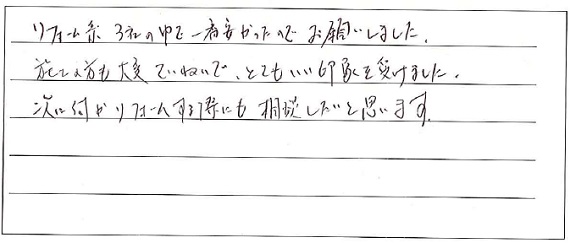 リフォーム系 3社の中で一番安かったので お願いしました。
施工の方も 大変 ていねいで、とてもいい印象を受けました。
次に何かリフォームする際にも 相談したいと思います。